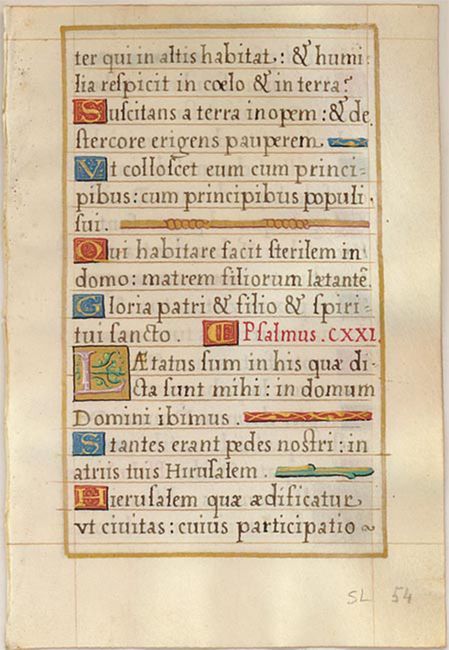 ter qui in altis habitat: & humi-
lia respicit in cœlo & in terra?
Suscitans a terra inopem: & de
stercore erigens pauperem
Vt colloscet eum cum princi-
pibus: cum principibus populi
sui.
Qui habitare facit sterilem in
domo: matrem filiorum lætantē.
Gloria patri & filio & spiri-
tui sancto. Psalmus. CXXI.
LÆtatus sum in his quæ di-
cta sunt mihi: in domum
Domini ibimus.
Stantes erant pedes nostri: in
atriis tuis Hirusalem.
Hierusalem quæ ædificatur
vt ciuitas: cuius participatio ~
SL 54